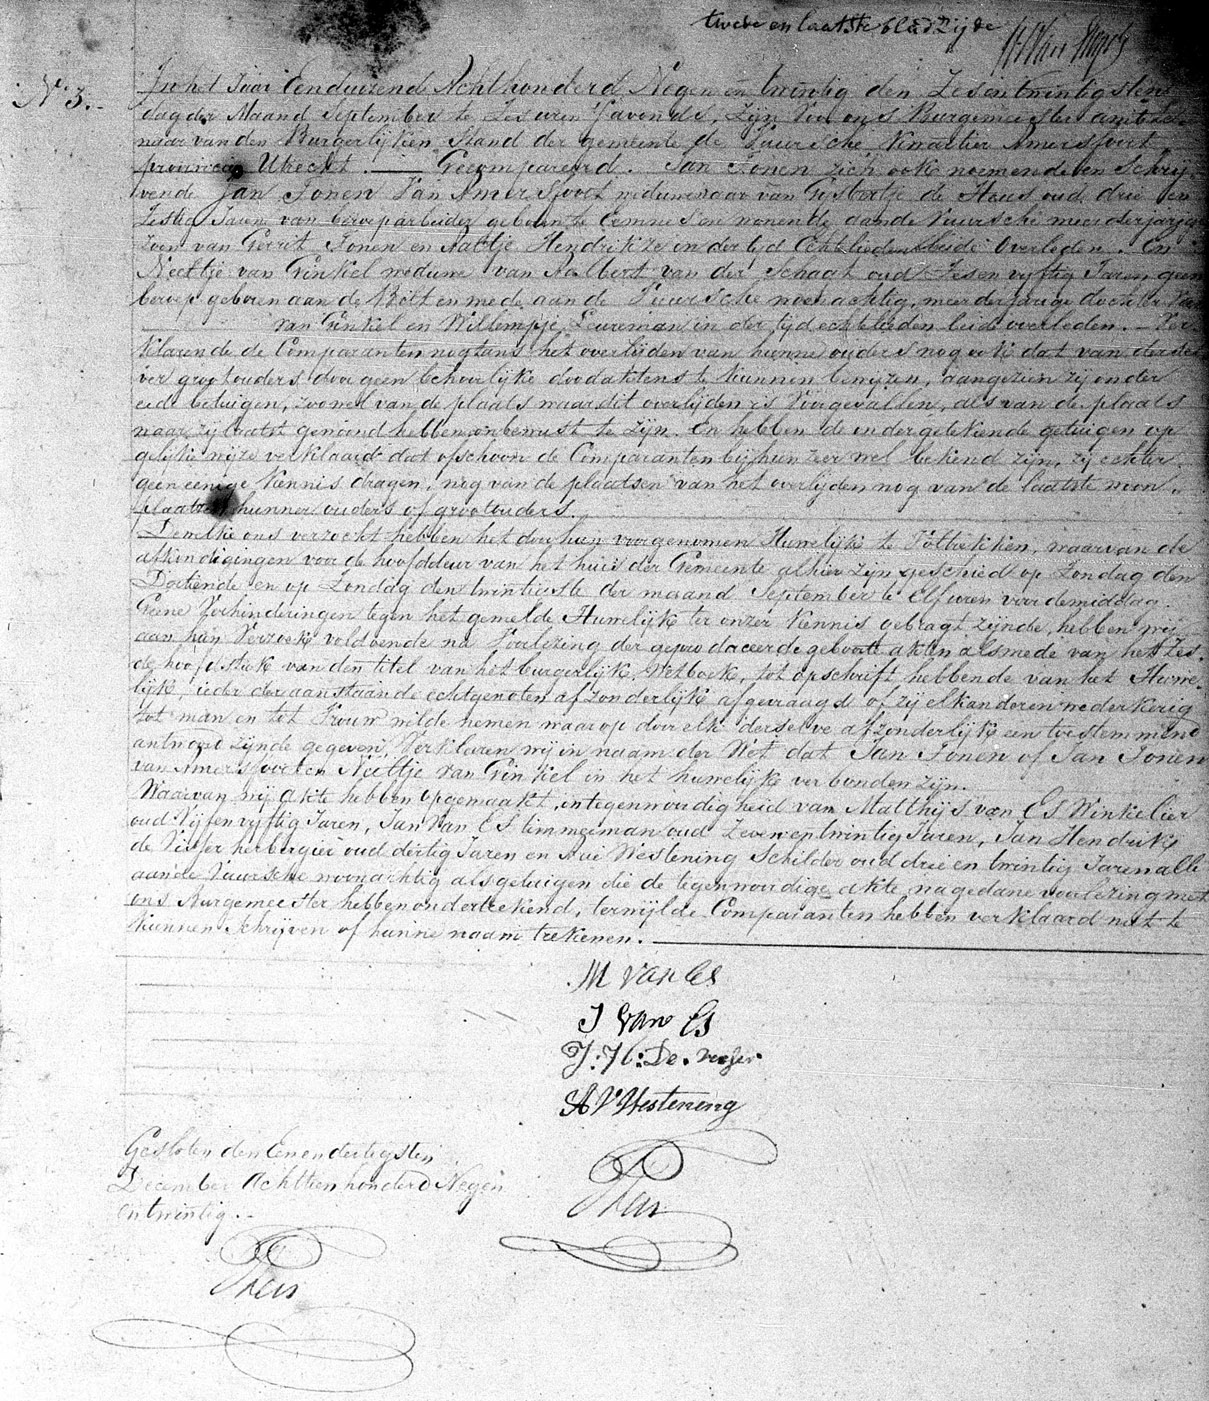 twede en laatste bladzijde
N. 3.
In het Jaar Eenduizend Achthonderd Negen en twintig den Zesentwintigsten
dag der Maand September te Zes uren S'avonds, Zijn Voor ons Burgemeester ambte-
naar van den Burgerlijken Stand der gemeente de Vuursche Kwartier Amersfoort
provincie Utrecht. Gecompareerd. Jan Tonen zich ook noemende en Schrij-
vende Jan Tonen Van Amersfoort weduwenaar van Gijsbertje de Heus oud drie en
Zestig Jaren van beroep arbeider geboren te Eemnes en wonende aan de Vuursche meerderjarige
zoon van Gerrit Tonen en Aaltje Hendrikze in der tijd Echtelieden beide Overleden. En
Neeltje van Ginkel weduwe van Aalbert van der Schaat oud Zes en vyftig Jaren geen
beroep geboren aan de Bilt en mede aan de Vuursche woonachtig, meerderjarige dochter van
van Ginkel en Willempje Leureman in der tijd echtelieden beide overleden. Ver
klarende de Comparanten nogtans het overlijden van hunne ouders nog ook dat van derzel
ver grootouders door geen behoorlijke doodaktens te kunnen bewyzen, aangezien zij onder
eede betuigen, zoowel van de plaats waar dit overlijden is Voorgevallen, als van de plaats
waar zij laatst gewoond hebben onbewust te zijn. En hebben de ondergetekende getuigen op
gelijke wijze verklaard dat ofschoon de Comparanten bij hun zeer wel bekend zijn, zij echter
geen eenige Kennis dragen, nog van de plaatsen van het overlijden nog van de laatste woon-
plaatsen hunner ouders of grootouders.
Dewelke ons verzocht hebben het door hun voorgenomen Huwelijk te Voltrekken, waarvan de
afkondigingen voor de hoofddeur van het huis der Gemeente alhier zijn geschied op Zondag den
Dertiende en op Zondag den twintigste der maand September te Elf uren voor de middag.
Geene Verhinderingen tegen het gemelde Huwelijk ter onzer Kennis gebragt zijnde, hebben wij
aan hun Verzoek voldoende na Voorlezing der geproduceerde geboorte akten alsmede van het Zes-
de hoofdstuk van den titel van het burgerlijk Wetboek, tot opschrift hebbende van het Huwe-
lijk, ieder der aanstaande echtgenoten afzonderlijk afgevraagd of zij elkanderen wederkerig
tot man en tot Vrouw wilde nemen waarop door elk derselve afzonderlijk een toestemmend
antwoord zijnde gegeven, Verklaren wij in naam der Wet dat Jan Tonen of Jan Tonen
van Amersfoort en Neeltje van Ginkel in het huwelijk verbonden zijn.
Waarvan wij akte hebben opgemaakt, in tegenwoordigheid van Matthijs van Es Winkelier
oud Vijf en vyftig Jaren, Jan van Es timmerman oud Zeven en twintig Jaren, Jan Hendrik
de Visser herbergier oud dertig Jaren en Aui Westening Schilder oud drie en twintig Jaren alle
aan de Vuursche woonachtig als getuigen die de tegenwoordige akte, na gedane voorlezing met
ons Burgemeester hebben ondertekend, terwijl de Comparanten hebben verklaard niet te
kunnen Schrijven of hunne naam tekenen.
M van Es
J van Es
J: H: De. Visser.
A Westening
Gesloten den Eenendertigsten
December Achttien honderd Negen
en twintig.